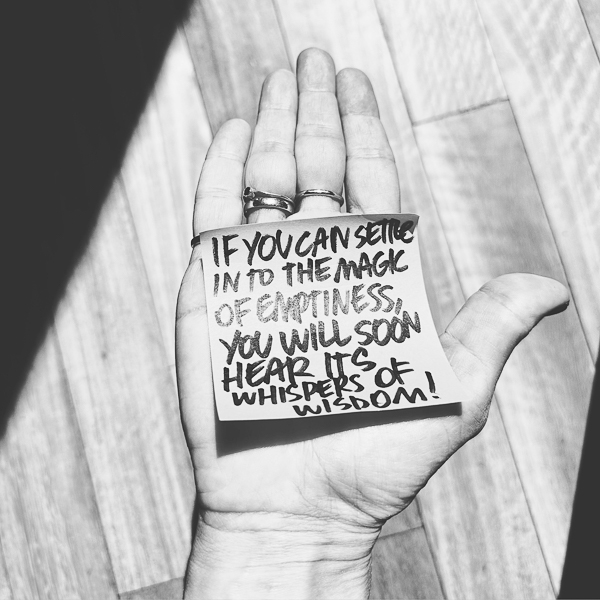 IF YOU CAN SETTLE
IN TO THE MAGIC
OF EMPTINESS,
YOU WILL SOON
HEAR ITS
WHISPERS OF
WISDOM!